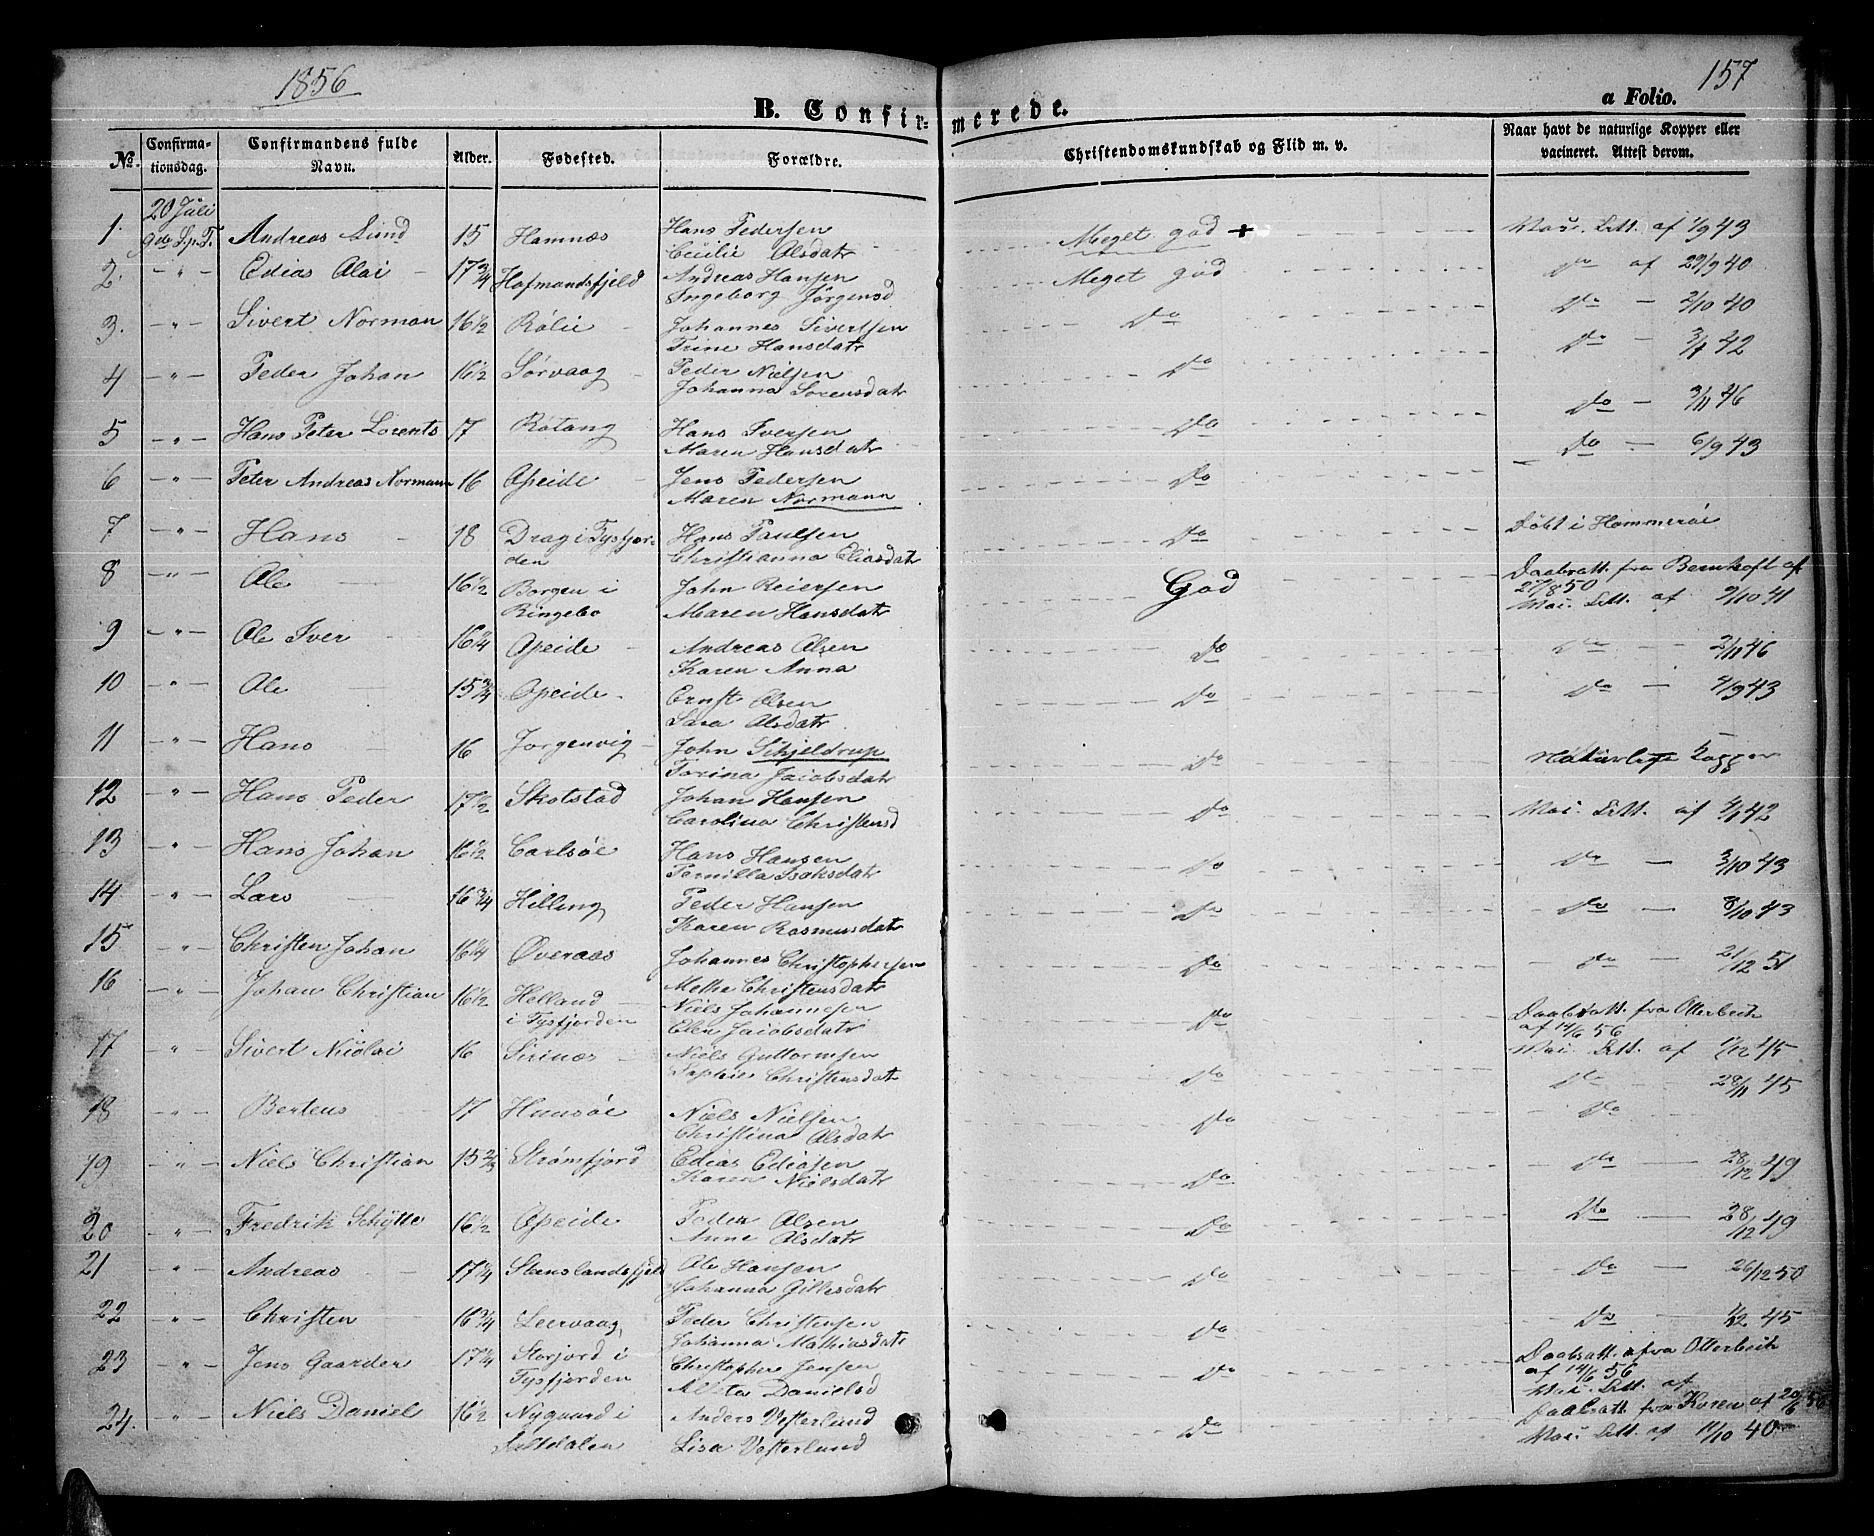 1856
157
B. Confirmerede.
a Folio.
No. Confirmationsdag. Confirmandens fulde Navn. Alder. Fødested. Forældre. Christendomskundskab og Flid m. v. Naar havt de naturlige Kopper eller vacineret. Attest derom.
20 Juli
1. 9de S. p. T. Andreas Lund 15 Hamnæs Hans Pedersen Meget god + Att. af 1/9 43
Cecilie Olsdatr
2. - " - Edias Olai 17 3/4 Hofmandsfjeld Andreas Hansen Meget god do af 29/9 40
Ingeborg Jørgensd
3. - " - Sivert Norman 16 1/2 Røtie Johannes Sivertsen Do Do - 2/10 40
Trine Hansdatr
4 - " - Peder Johan 16 1/2 Sørvaag Peder Nielsen Do Do - 42
Johanna Sørensdatr
5 - " - Hans Peter Lorents 17 Røtang Hans Iversen Do Do - 3/11 46
Maren Hansdatr
6 - " - Peter Andreas Normann 16 Opeide Jens Pedersen Do Do - 6/9 43
Maren Normann
7 - " - Hans 18 Drag i Tysfjorden Hans Paulsen Do Døbt i Hammerøe
Christianna Eliasdatr
8 - " - Ole 16 1/2 Borgen i Ringebo John Reiersen God Daabsatt. fra Bernhoft af 27/8 50
Maren Hansdatr Att. af 9/10 41
9 - " - Ole Iver 16 1/4 Opeide Andreas Olsen Do Do - 2/11 46
Karen Anna
10 - " - Ole 15 3/4 Opeide Ernst Olsen Do Do - 4/9 43
Sara Olsdatr
11 - " - Hans 16 Jorgenvig John Schjeldrup Do Naturlige Kopper
Torina Jacobsdatr
12 - " - Hans Peder 17 1/2 Skotstad Johan Hansen Do Att. af 42
Carolina Christensd
13 - " - Hans Johan 16 1/2 Carlsøe Hans Hansen Do Do - 3/10 43
Pernilla Isaksdatr
14 - " - Lars 16 3/4 Hilling Peder Hansen Do Do - 8/10 43
Karen Rasmusdatr
15 - " - Christen Johan 16 1/4 Øveraas Johannes Christophersen Do Do - 21/12 51
Methe Christensdatr
16 - " - Johan Christian 16 1/2 Helland i Tysfjorden Niels Johannesen Do Daabsatt. fra Otterbech af 14/6 56
Elen Jacobsdatr Att. af 1/12 45
17 - " - Sivert Nicolai 16 Niels Guttormsen Do Do - 28/11 45
Sophie Christensdatr
18 - " - Berteus 17 Niels Nielsen Do Do
Christina Olsdatr
19 - " - Niels Christian 15 2/3 Strømfjord Edias Ediasen Do Do - 28/12 49
Karen Nielsdatr
20 - " - Fredrik Schytte 16 1/2 Opeide Peder Olsen Do Do - 28/12 49
Anne Olsdatr
21 - " - Andreas 17 1/4 Stenslandsfjeld Ole Hansen Do Do - 26/12 50
Johanna Gillesdatr
22 - " - Christen 16 3/4 Leervaag Peder Christensen Do Do - 1/12 45
Johanna Mathiasdatr
23 - " - Jens Gaarder 17 1/4 Storjord i Tysfjorden Christopher Jensen Do Daabsatt. fra Otterbech af 14/6 56
Danielsd Att. af
24. - " - Niels Daniel 16 1/2 Nygaard i Saltdalen Anders Vesterlund Do Daabsatt. fra Koren af 20/6 56
Lisa Vesterlund Att. af 11/10 40